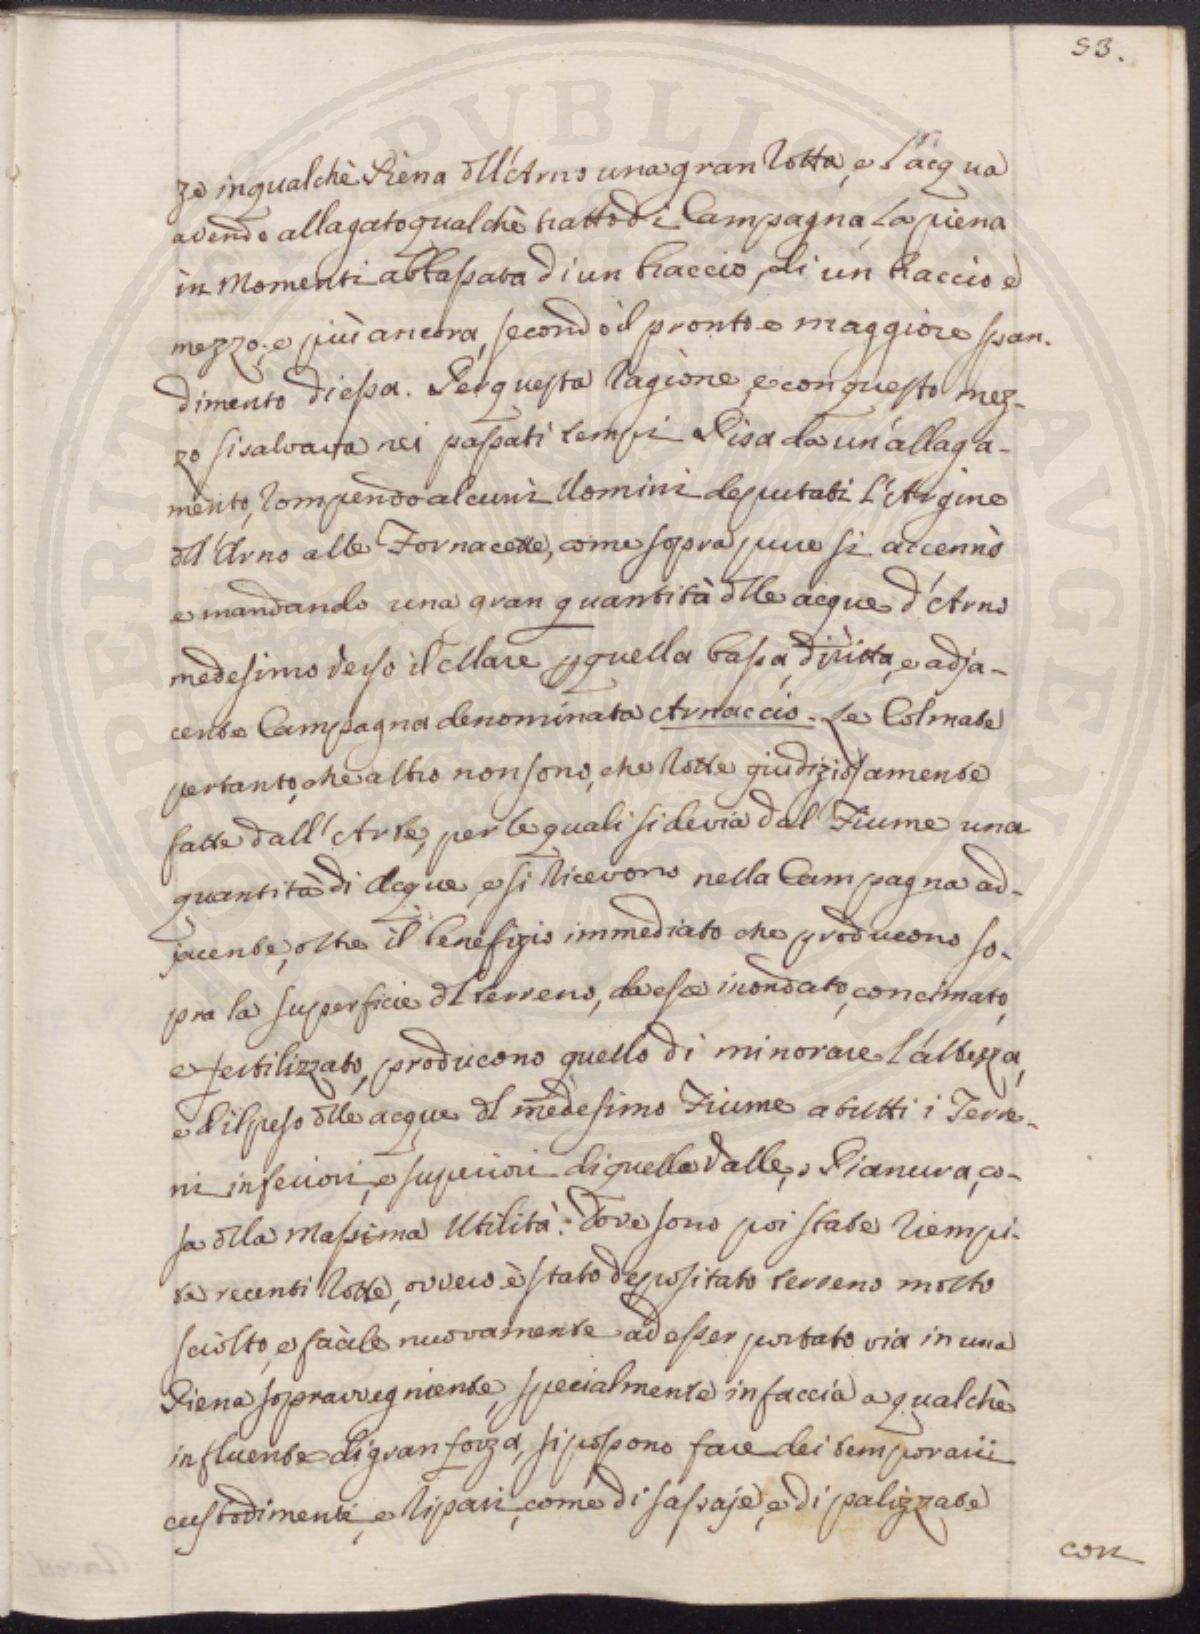 53.
ze in qualchè Piena dll'Arno una gran Rotta, e l'acqua
avendo allagato qualchè tratto di Campagna, La piena
in Momenti abbassava di un braccio, di un braccio e
mezzo, e più ancora, secondo il pronto e maggiore span-
dimento di essa. Per questa Ragione, e con questo mez-
zo si salvava nei passati tempi Pisa da un'allaga-
mento, Rompendo alcuni Uomini deputati l'Argine
dll'Arno alle Fornacette, come sopra pure si accennò
e mandando una gran quantità dlle acque d'Arno
medesimo verso il Mare p quella bassa, diritta, e adja-
cente Campagna denominata Arnaccio. Le Colmate
pertanto, che altro non sono, che Rotte giudiziosamente
fatte dall'Arte, per le quali si devia dal Fiume una
quantità di Acque, e si Ricevono nella Campagna ad-
jacente, oltre il benefizio immediato che producono so-
pra la superficie dl terreno, da esse inondato, concimato,
e fertilizzato, producono quello di minorare l'altezza,
e di il peso dlle acque dl medesimo Fiume a tutti i Terre-
ni inferiori, e superiori di quella Valle, o Pianura, co-
sa dlla Massima Utilità: dove sono poi state Riempi-
te recenti Rotte, ovvero è stato depositato terreno molto
sciolto, e facile nuovamente ad esser portato via in una
Piena sopravvegniente, specialmente in faccia a qualchè
influente di gran forza, si possono fare dei temporarii
custodimenti, e Ripari, come di sassaje, e di palizzate
con
OPERITE PUBLICA AUGENDA